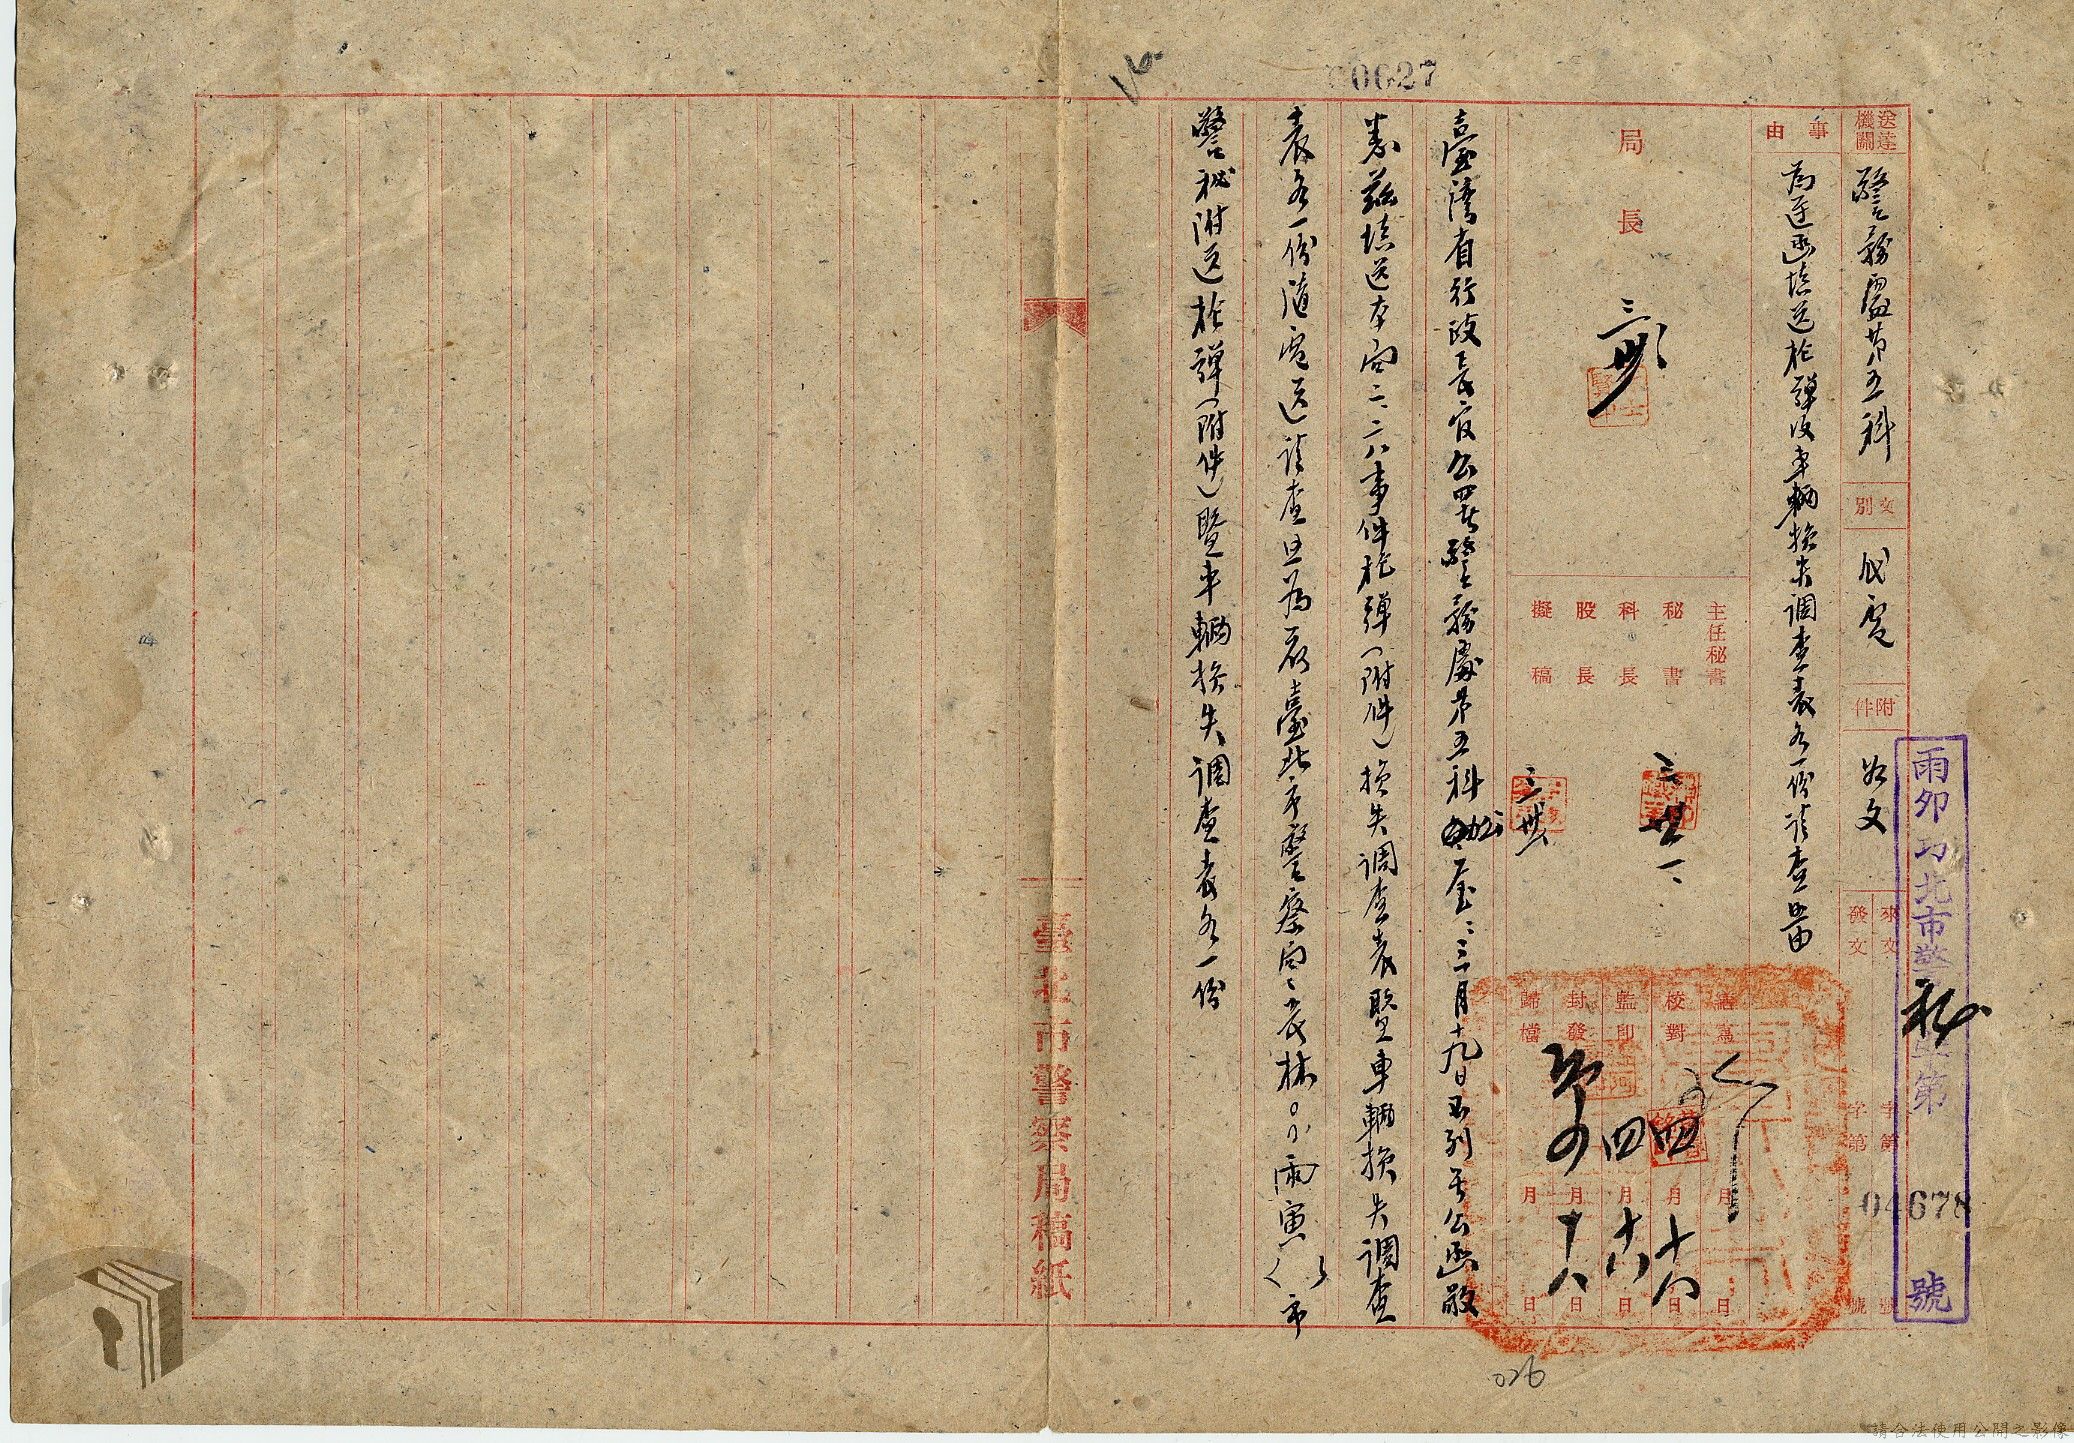 00627
送達機關
警務處第五科
文別
代電
附件
如文
來文 字第 號
發文 字第 號
雨卯 北市警秘 第04678號
事由
為逕函填送槍彈及車輛損失調查表各一份請查照由
局長
主任秘書
秘書
科長
股長
擬稿
繕寫 月 日
校對 四月十六日
監印 四月十六日
封發 月十八日
歸檔 月 日
臺灣省行政長官公署警務處第五科 三月十九日 列字公函敬
悉茲填送本局二二八事件槍彈(附件)損失調查表暨車輛損失調查
表各一份隨電送請查照為荷臺北市警察局局長林○○雨寅( )市
警秘附送槍彈(附件)暨車輛損失調查表各一份
臺北市警察局稿紙
026
請合法使用公開之影像